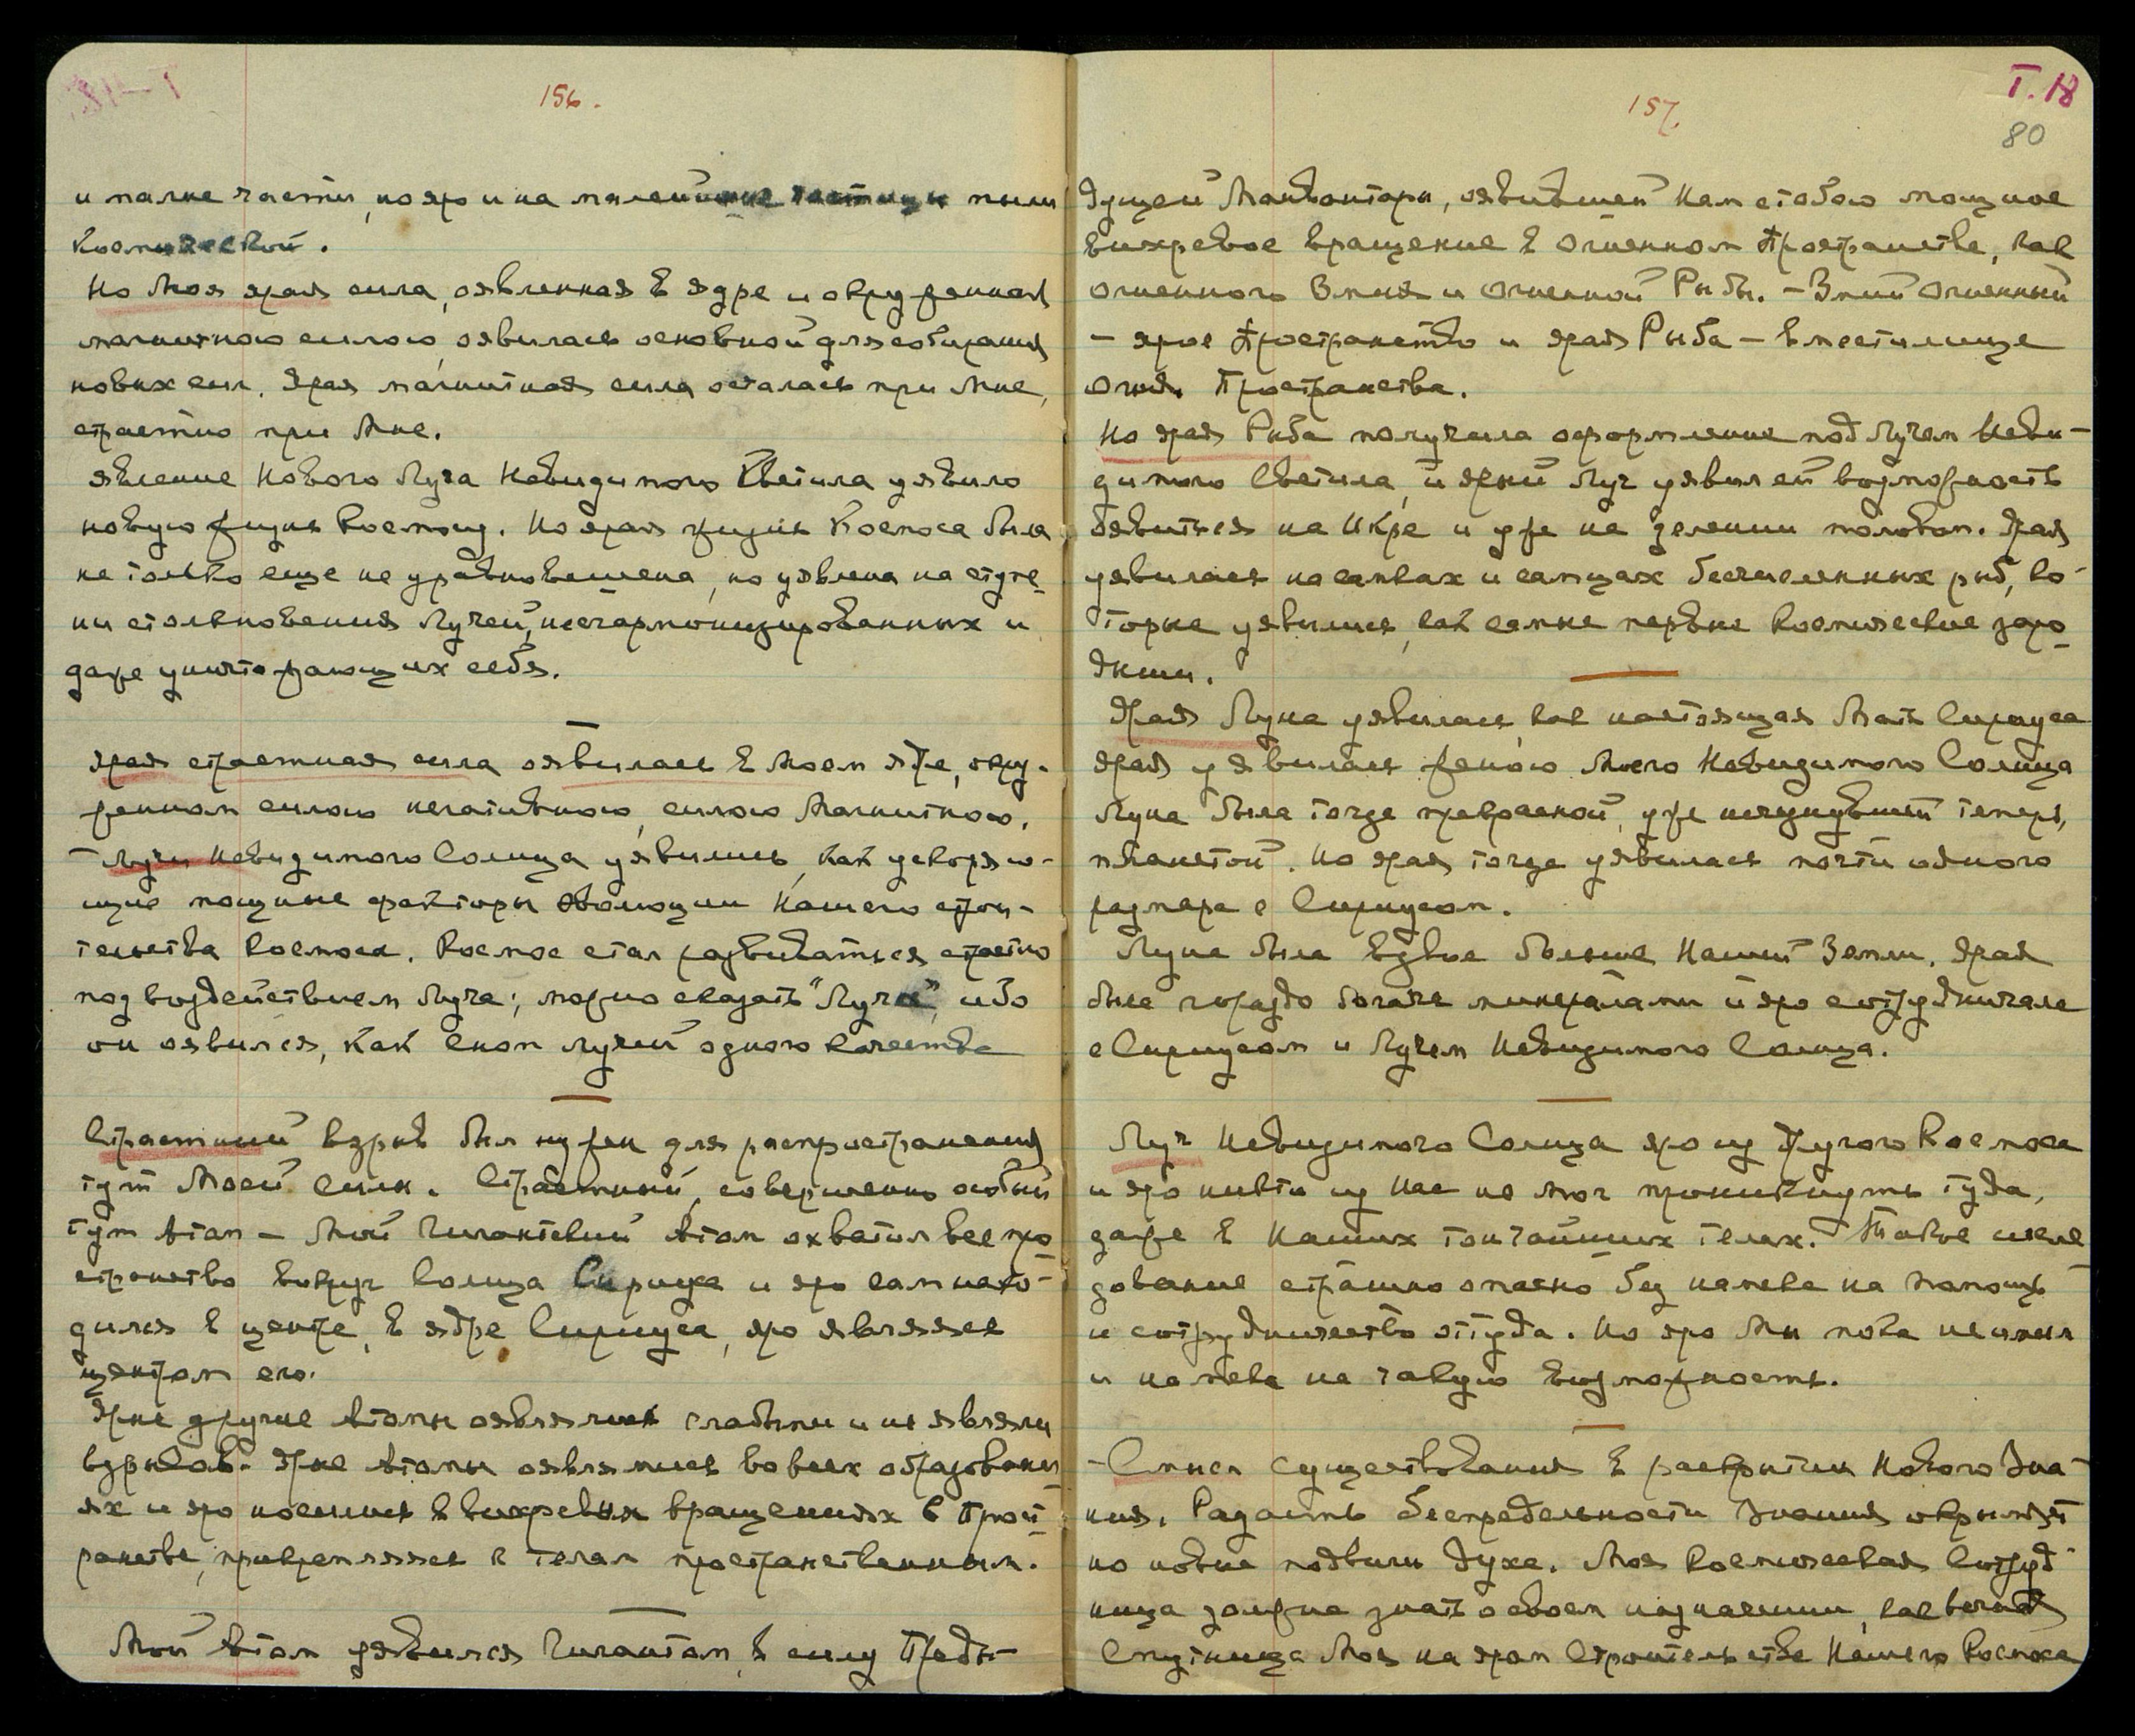 156.
и малые части, но яро и на малейшие частицы пыли
Космической.
Но Моя ярая сила, оявленная в ядре и окруженная
магнитною силою, оявилась основной для собирания
новых сил. Ярая магнитная сила осталась при Мне,
страстно при Мне.
Явление Нового Луча Невидимого Светила уявило
новую жизнь Космосу. Но ярая жизнь Космоса была
не только еще не уравновешена, но уявлена на ступе-
ни столкновения Лучей, несгармонизированных и
даже уничтожающих себя.
Ярая страстная сила оявилась в Моем ядре, окру-
женном силою негативною, силою Магнитною.
Лучи Невидимого Солнца уявились, как ускоряю-
щие мощные факторы Эволюции Нашего строи-
тельства Космоса. Космос стал развиваться страстно
под воздействием Луча; можно сказать "Лучей", ибо
он оявился, как Сноп лучей одного качества
Страстный взрыв был нужен для распространения
тут Моей Силы. Страстный, совершенно особый
тут Атом – Мой Гигантский Атом охватил все про-
странство вокруг Солнца Сириуса и яро сам нахо-
дился в центре, в ядре Сириуса, яро являясь
центром его.
Ярые другие Атомы оявлялись слабыми и не являли
взрывов. Ярые Атомы оявлялись во всех образовани-
ях и яро носились в вихревых вращениях в Прост-
ранстве, прикрепляясь к телам пространственным.
Мой Атом уявился Гигантом, в силу Преды-
Т. 18
157.
80
дущей Манвантары, оявившей Нам с тобою мощное
вихревое вращение в Огненном Пространстве, как
Огненного Змия и Огненной Рыбы. – Змий Огненный
– ярое Пространство и ярая Рыба – вместилище
Огня Пространства.
Но ярая Рыба получила оформление под Лучом Неви-
димого Светила, и яркий Луч уявил ей возможность
оявиться на Икре и уже на зелении молоком. Ярая
уявилась на самках и самцах бесчисленных рыб, ко-
торые уявились, как самые первые Космические заро-
дыши.
Ярая Луна уявилась, как настоящая Мать Сириуса
Ярая уявилась женою Моего Невидимого Солнца
Луна была тогда прекрасной, уже исчезнувшей теперь,
планетой. Но ярая тогда уявилась почти одного
размера с Сириусом.
Луна была вдвое больше Нашей Земли. Ярая
была гораздо богаче минералами и яро сотрудничала
с Сириусом и Лучом Невидимого Солнца.
Луч Невидимого Солнца яро из другого Космоса
и яро никто из Нас не мог проникнуть туда,
даже в Наших тончайших телах. Такое иссле-
дование страшно опасно без намека на помощь
и сотрудничество оттуда. Но яро Мы пока не имели
и намека на такую возможность.
– Смысл существования в раскрытии Нового Зна-
ния. Радость беспредельности Знания окрыляет
на новые подвиги Духа. Моя Космическая Сотруд-
ница должна знать о своем назначении, как вечная
Спутница Моя на яром Строительстве Нашего Космоса